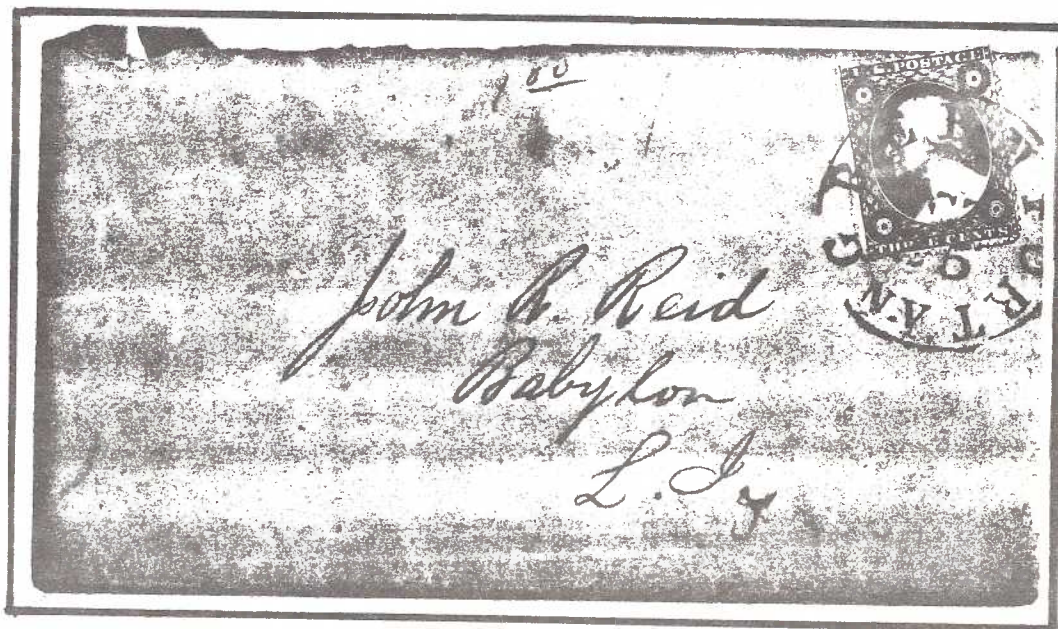 100
U.S. POSTAGE
THREE CENTS
John R. Reid
Babylon
L. I.